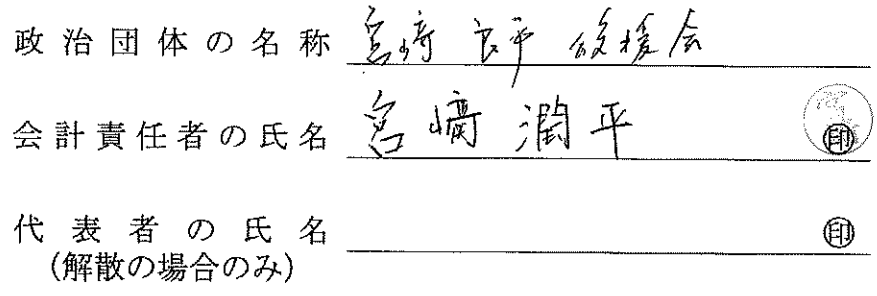 政治団体の名称 宮崎良平後援会
会計責任者の氏名 宮﨑潤平 印
代表者の氏名 印
(解散の場合のみ)